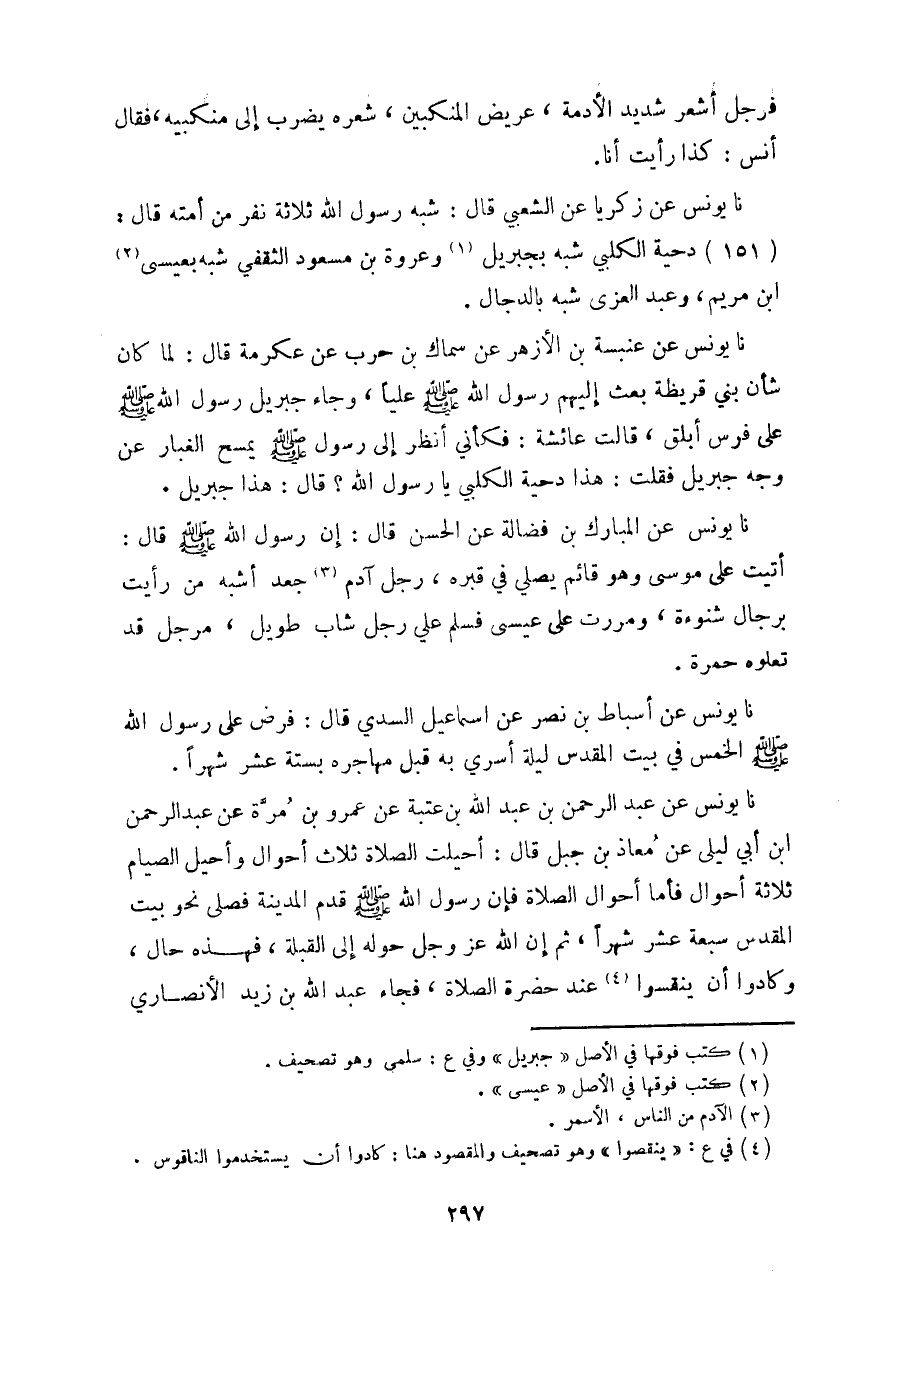 فرجل أشعر شديد الأدمة ، عريض المنكبين ، شعره يضرب إلى منكبيه ، فقال
أنس : كذا رأيت أنا.
نا يونس عن زكريا عن الشعبي قال : شبه رسول الله ثلاثة نفر من أمته قال :
( ١٥١ ) دحية الكلبي شبه بجبريل (١) وعروة بن مسعود الثقفي شبه بعيسى (٢)
ابن مريم، وعبد العزى شبه بالدجال .
نا يونس عن عنبسة بن الأزهر عن سماك بن حرب عن عكرمة قال : لما كان
شأن بني قريظة بعث إليهم رسول الله ﷺ علياً ، وجاء جبريل رسول الله ﷺ
على فرس أبلق ، قالت عائشة : فكأني أنظر إلى رسول ﷺ يمسح الغبار عن
وجه جبريل فقلت : هذا دحية الكلبي يا رسول الله ؟ قال : هذا جبريل .
نا يونس عن المبارك بن فضالة عن الحسن قال : إن رسول الله ﷺ قال :
أتيت على موسى وهو قائم يصلي في قبره ، رجل آدم (٣) جعد أشبه من رأيت
برجال شنوءة ، ومررت على عيسى فسلم علي رجل شاب طويل ، مرجل قد
تعلوه حمرة .
نا يونس عن أسباط بن نصر عن اسماعيل السدي قال : فرض على رسول الله
ﷺ الخمس في بيت المقدس ليلة أسري به قبل مهاجره بستة عشر شهراً .
نا يونس عن عبد الرحمن بن عبد الله بن عتبة عن عمرو بن مُرَّة عن عبدالرحمن
ابن أبي ليلى عن مُعاذ بن جبل قال : أحيلت الصلاة ثلاث أحوال وأحيل الصيام
ثلاثة أحوال فأما أحوال الصلاة فإن رسول الله ﷺ قدم المدينة فصلى نحو بيت
المقدس سبعة عشر شهراً ، ثم إن الله عز وجل حوله إلى القبلة ، فهذه حال ،
وكادوا أن ينقسوا (٤) عند حضرة الصلاة ، فجاء عبد الله بن زيد الأنصاري
(١) كتب فوقها في الأصل « جبريل » وفي ع : سلمى وهو تصحيف .
(٢) كتب فوقها في الأصل « عيسى » .
(٣) الآدم من الناس ، الأسمر .
(٤) في ع : « ينقصوا » وهو تصحيف والمقصود هنا : كادوا أن يستخدموا الناقوس .
٢٩٧